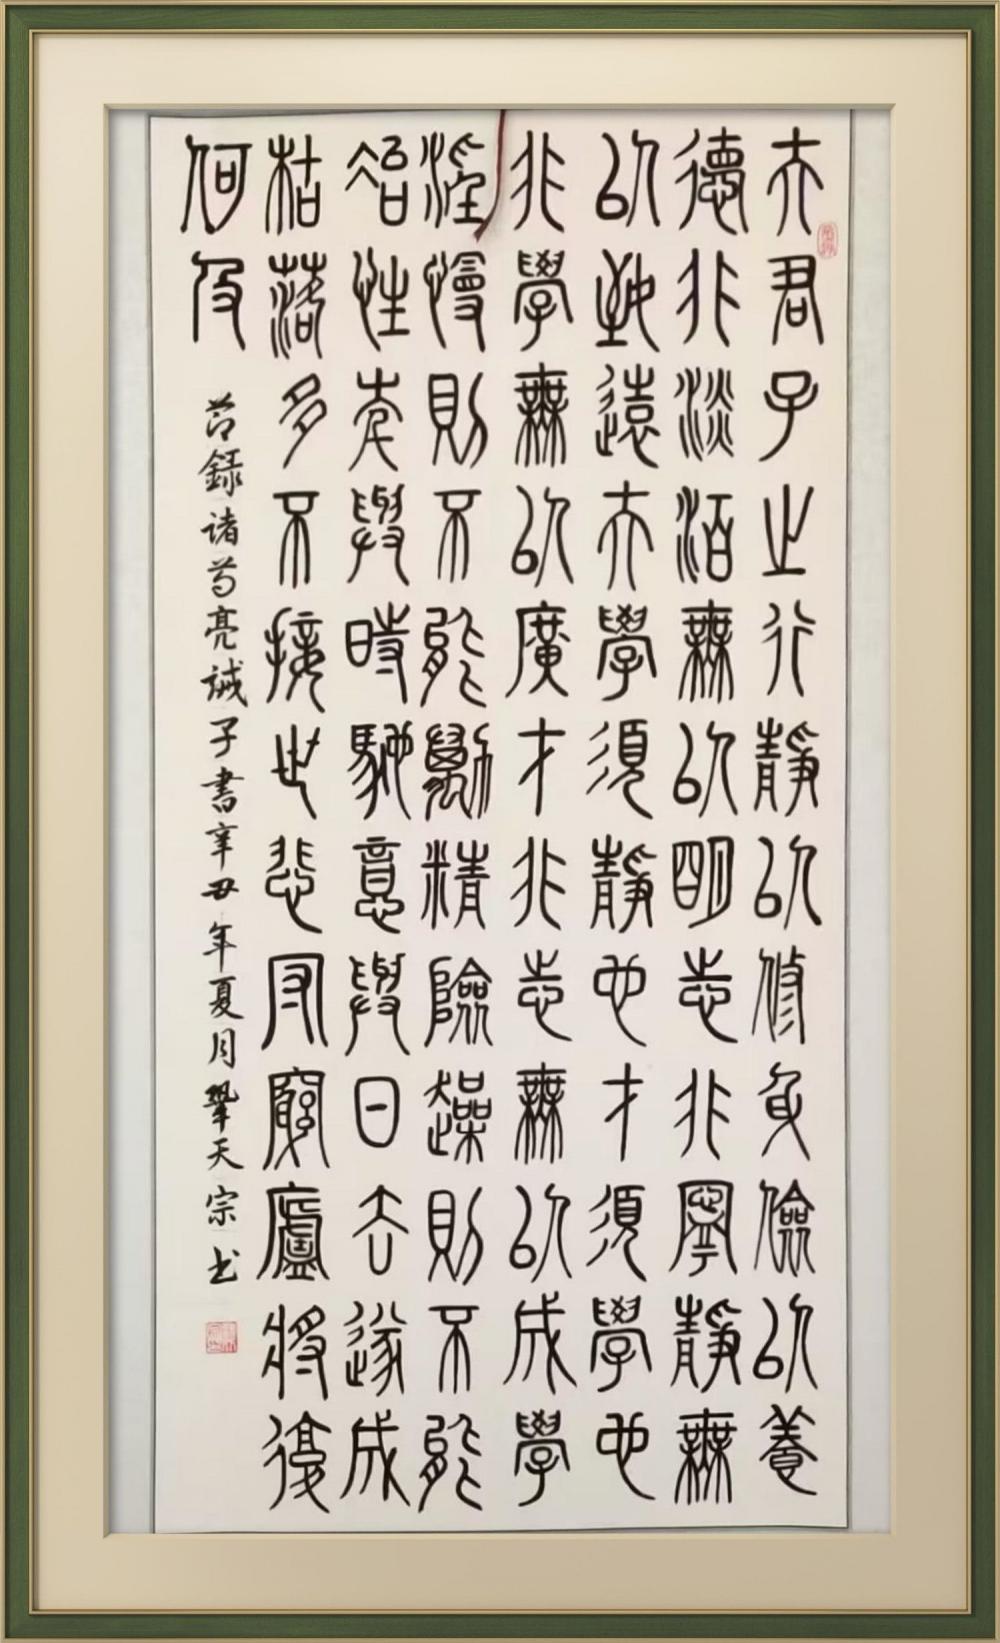 夫君子之行靜以修身儉以養
德非淡泊無以明志非寧靜無
以致遠夫學須靜也才須學也
非學無以廣才非志無以成學
淫慢則不能勵精險躁則不能
冶性年與時馳意與日去遂成
枯落多不接世悲守窮廬將復
何及
节録诸葛亮誡子書辛丑年夏月鞏天宗书